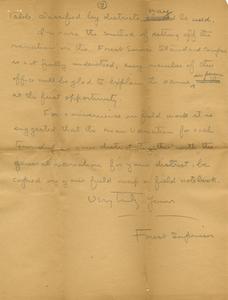 ②
Table classified by districts may be used.
In case the method of setting off the
variation on the Forest Service Standard Compass
is not fully understood, any member of this
office will be glad to explain the same in person
at the first opportunity.
For convenience in field work it is
suggested that the mean variation for each
township in your district together with the
general instructions for your district, be
copied on your field map or field notebook.
Very truly yours
Forest Supervisor